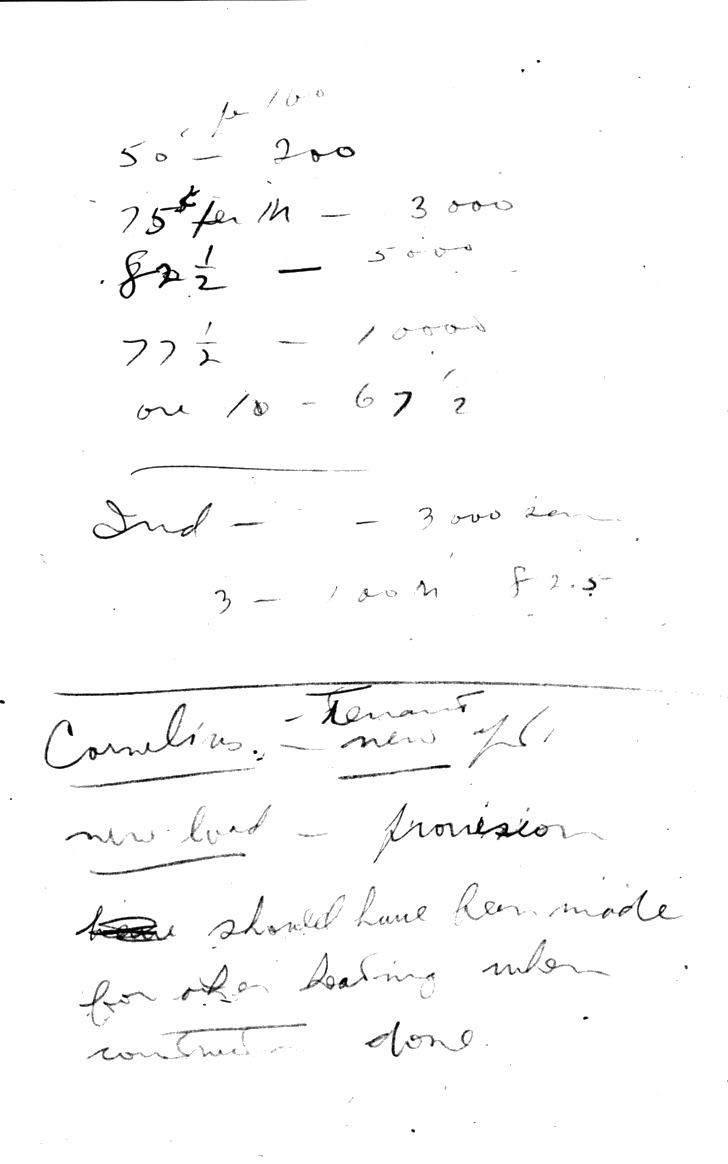 per 100
50 — 200
75¢ per M — 3000
.82 1/2 — 5000
77 1/2 — 10000
over 10 - 67 1/2
Ind — — 3000
3 — 100 M 82.5
Cornelius. - Tenant
— new
new load — provision
should have been made
for other heating when
construction done.